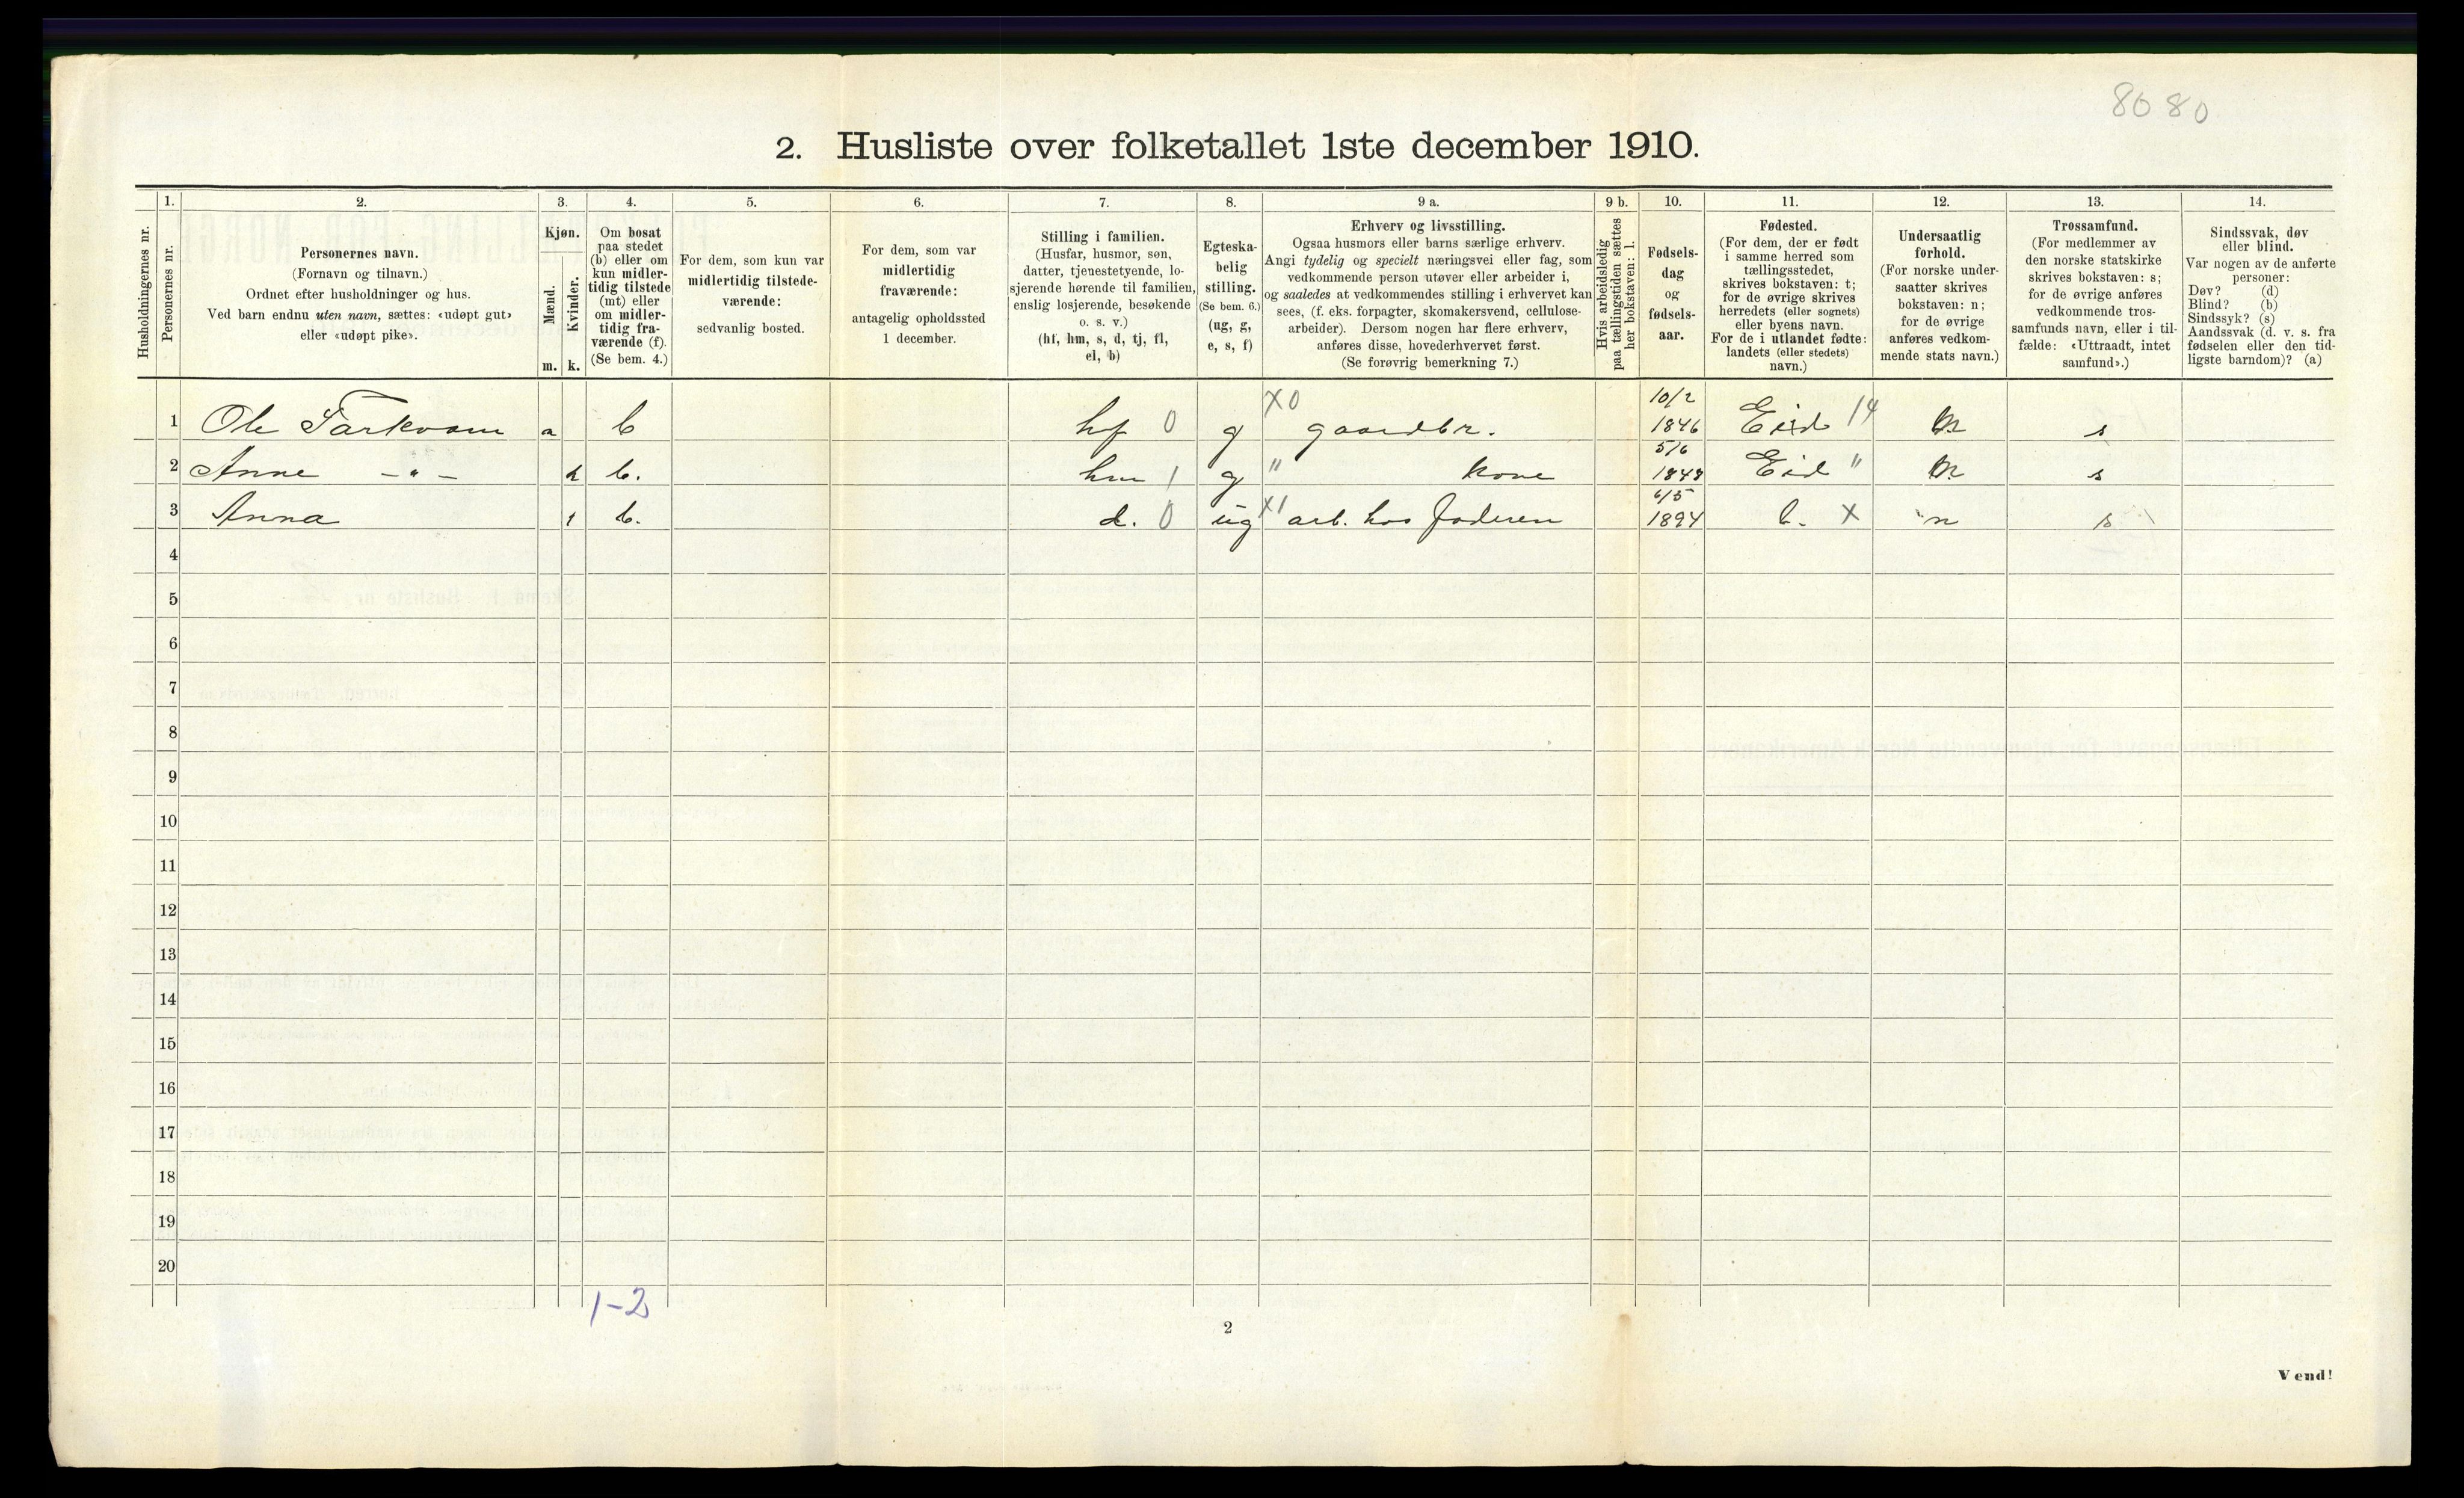 8080
2. Husliste over folketallet 1ste december 1910.
Husholdningernes nr.
1.
Personernes nr.
2.
Personernes navn.
(Fornavn og tilnavn.)
Ordnet efter husholdninger og hus.
Ved barn endnu uten navn, sættes: «udøpt gut»
eller «udøpt pike».
3.
Kjøn.
Mænd.
m.
Kvinder.
k.
4.
Om bosat
paa stedet
(b) eller om
kun midler-
tidig tilstede
(mt) eller
om midler-
tidig fra-
værende (f).
(Se bem. 4.)
5.
For dem, som kun var
midlertidig tilstede-
værende:
sedvanlig bosted.
6.
For dem, som var
midlertidig
fraværende:
antagelig opholdssted
1 december.
7.
Stilling i familien.
(Husfar, husmor, søn,
datter, tjenestetyende, lo-
sjerende hørende til familien,
enslig losjerende, besøkende
o. s. v.)
(hf, hm, s, d, tj, fl,
el, b)
8.
Egteska-
belig
stilling.
(Se bem. 6.)
(ug, g,
e, s, f)
9 a.
Erhverv og livsstilling.
Ogsaa husmors eller barns særlige erhverv.
Angi tydelig og specielt næringsvei eller fag, som
vedkommende person utøver eller arbeider i,
og saaledes at vedkommendes stilling i erhvervet kan
sees, (f. eks. forpagter, skomakersvend, cellulose-
arbeider). Dersom nogen har flere erhverv,
anføres disse, hovederhvervet først.
(Se forøvrig bemerkning 7.)
9 b.
Hvis arbeidsledig
paa tællingstiden sættes
her bokstaven: l.
10.
Fødsels-
dag
og
fødsels-
aar.
11.
Fødested.
(For dem, der er født
i samme herred som
tællingsstedet,
skrives bokstaven: t;
for de øvrige skrives
herredets (eller sognets)
eller byens navn.
For de i utlandet fødte:
landets (eller stedets)
navn.)
12.
Undersaatlig
forhold.
(For norske under-
saatter skrives
bokstaven: n;
for de øvrige
anføres vedkom-
mende stats navn.)
13.
Trossamfund.
(For medlemmer av
den norske statskirke
skrives bokstaven: s;
for de øvrige anføres
vedkommende tros-
samfunds navn, eller i til-
fælde: «Uttraadt, intet
samfund».)
14.
Sindssvak, døv
eller blind.
Var nogen av de anførte
personer:
Døv? (d)
Blind? (b)
Sindssyk? (s)
Aandssvak (d. v. s. fra
fødselen eller den tid-
ligste barndom)? (a)
1 Ole Tarkvam b hf 0 g X0 gaardbr. 10/2 1846 Eid 14 n s
2 Anne — " — b. hm 1 g " kone 5/6 Eid " n s
3 Anna 1 b. d. 0 ug X1 arb. hos faderen 6/5 1894 X n s
4
5
6
7
8
9
10
11
12
13
14
15
16
17
18
19
20
1-2
2
Vend!